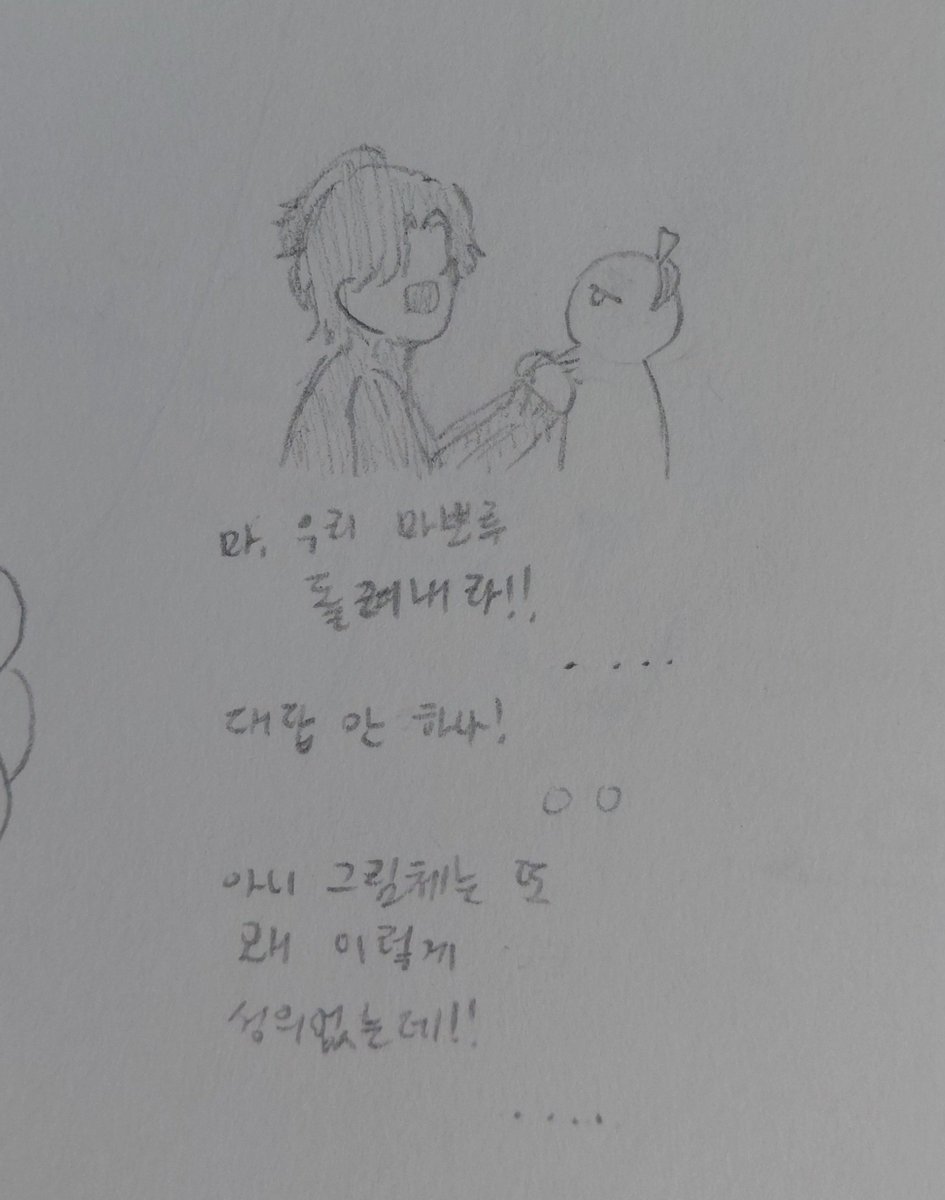 마, 우리 마뽀루
돌려내라!!
. ...
대답 안 하나!
ㅇㅇ
아니 그림체는 또
왜 이렇게
성의없는데!!
....